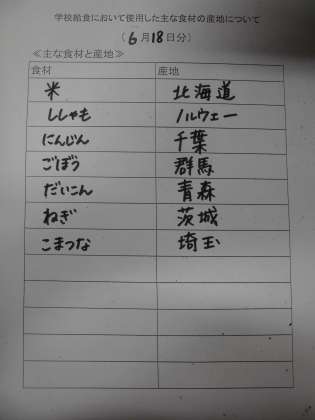 学校給食において使用した主な食材の産地について
(6月18日分)
≪主な食材と産地≫
食材 産地
米 北海道
ししゃも ノルウェー
にんじん 千葉
ごぼう 群馬
だいこん 青森
ねぎ 茨城
こまつな 埼玉